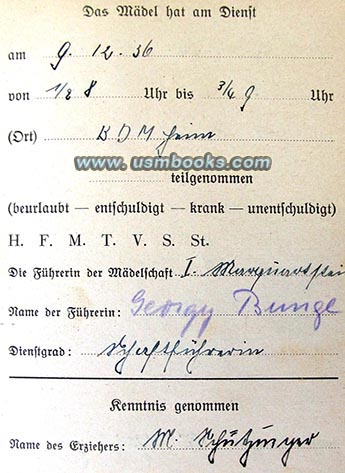 Das Mädel hat am Dienst
am 9. 12. 36
von 1/2 8 Uhr bis 3/4 9 Uhr
(Ort) B D M Heim
www.usmbooks.com
teilgenommen
(beurlaubt — entschuldigt — krank — unentschuldigt)
H. F. M. T. V. S. St.
Die Führerin der Mädelschaft I. Marquartstei
Name der Führerin: Georgy Bunge
Dienstgrad: Schaftführerin
Kenntnis genommen
Name des Erziehers: M. Schützinger